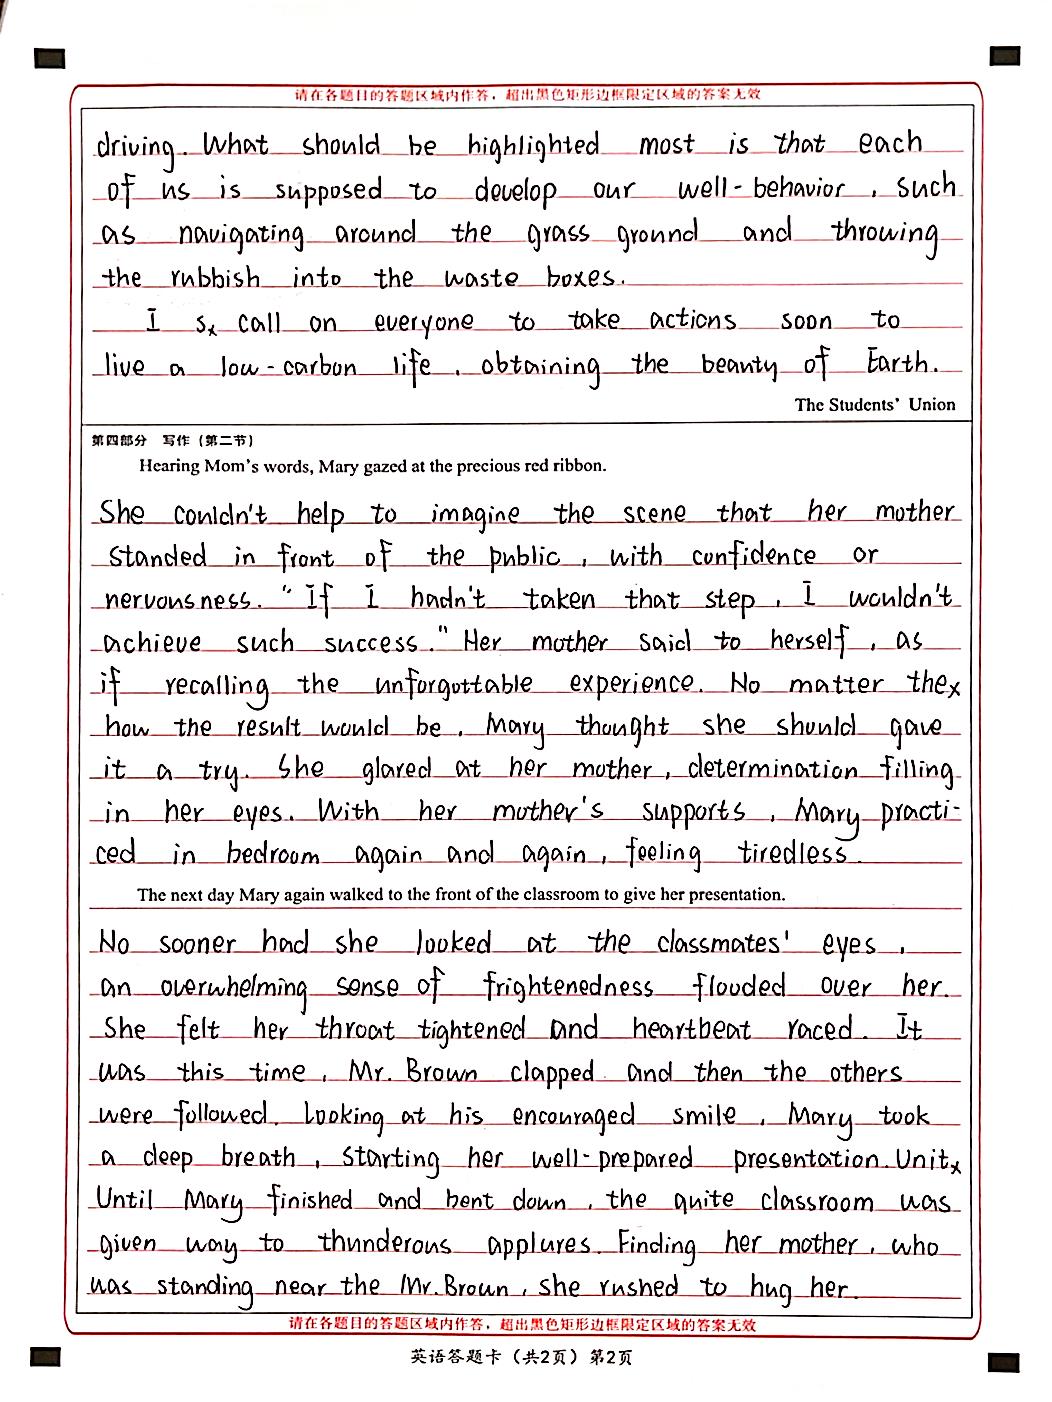 请在各题目的答题区域内作答，超出黑色矩形边框限定区域的答案无效
driving. What should be highlighted most is that each
of us is supposed to develop our well-behavior, such
as navigating around the grass ground and throwing
the rubbish into the waste boxes.
I sx call on everyone to take actions soon to
live a low-carbon life, obtaining the beauty of Earth.
The Students' Union
第四部分 写作（第二节）
Hearing Mom's words, Mary gazed at the precious red ribbon.
She couldn't help to imagine the scene that her mother
standed in front of the public, with confidence or
nervousness. "If I hadn't taken that step, I wouldn't
achieve such success." Her mother said to herself, as
if recalling the unforgottable experience. No matter thex
how the result would be, Mary thought she should gave
it a try. She glared at her mother, determination filling
in her eyes. With her mother's supports, Mary practi-
ced in bedroom again and again, feeling tiredless.
The next day Mary again walked to the front of the classroom to give her presentation.
No sooner had she looked at the classmates' eyes,
an overwhelming sense of frightenedness flooded over her.
She felt her throat tightened and heartbeat raced. It
was this time, Mr. Brown clapped and then the others
were followed. Looking at his encouraged smile, Mary took
a deep breath, starting her well-prepared presentation. Unitx
Until Mary finished and bent down, the quite classroom was
given way to thunderous applures. Finding her mother, who
was standing near the Mr. Brown, she rushed to hug her.
请在各题目的答题区域内作答，超出黑色矩形边框限定区域的答案无效
英语答题卡（共2页）第2页